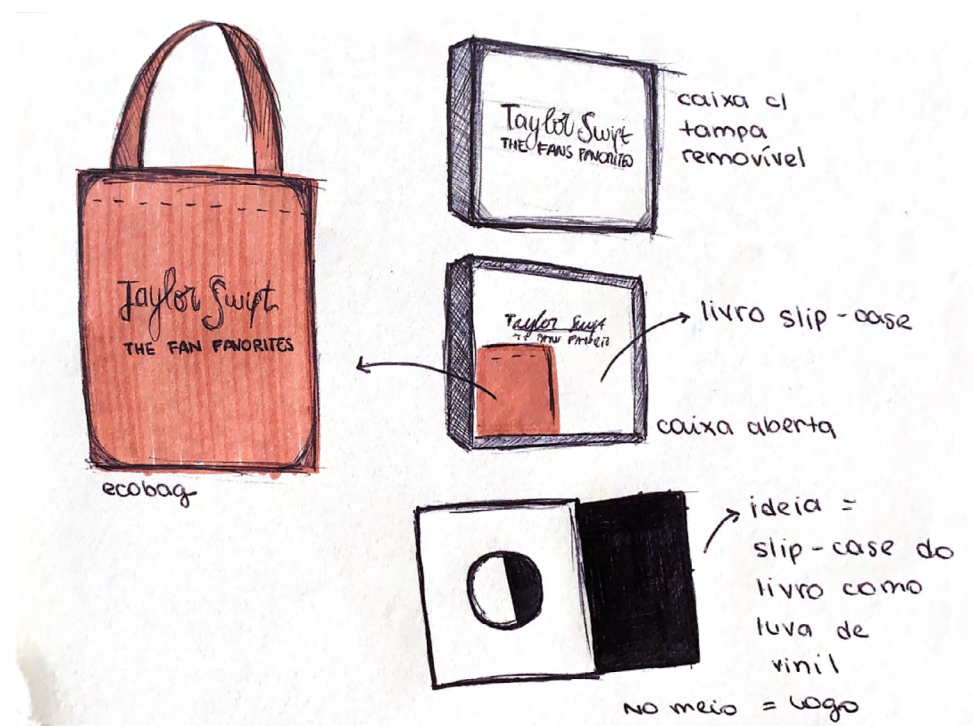 Taylor Swift
THE FAN FAVORITES
ecobag
Taylor Swift
THE FANS FAVORITES
caixa c/
tampa
removível
Taylor Swift
livro slip-case
caixa aberta
ideia =
slip-case do
livro como
luva de
vinil
no meio = logo